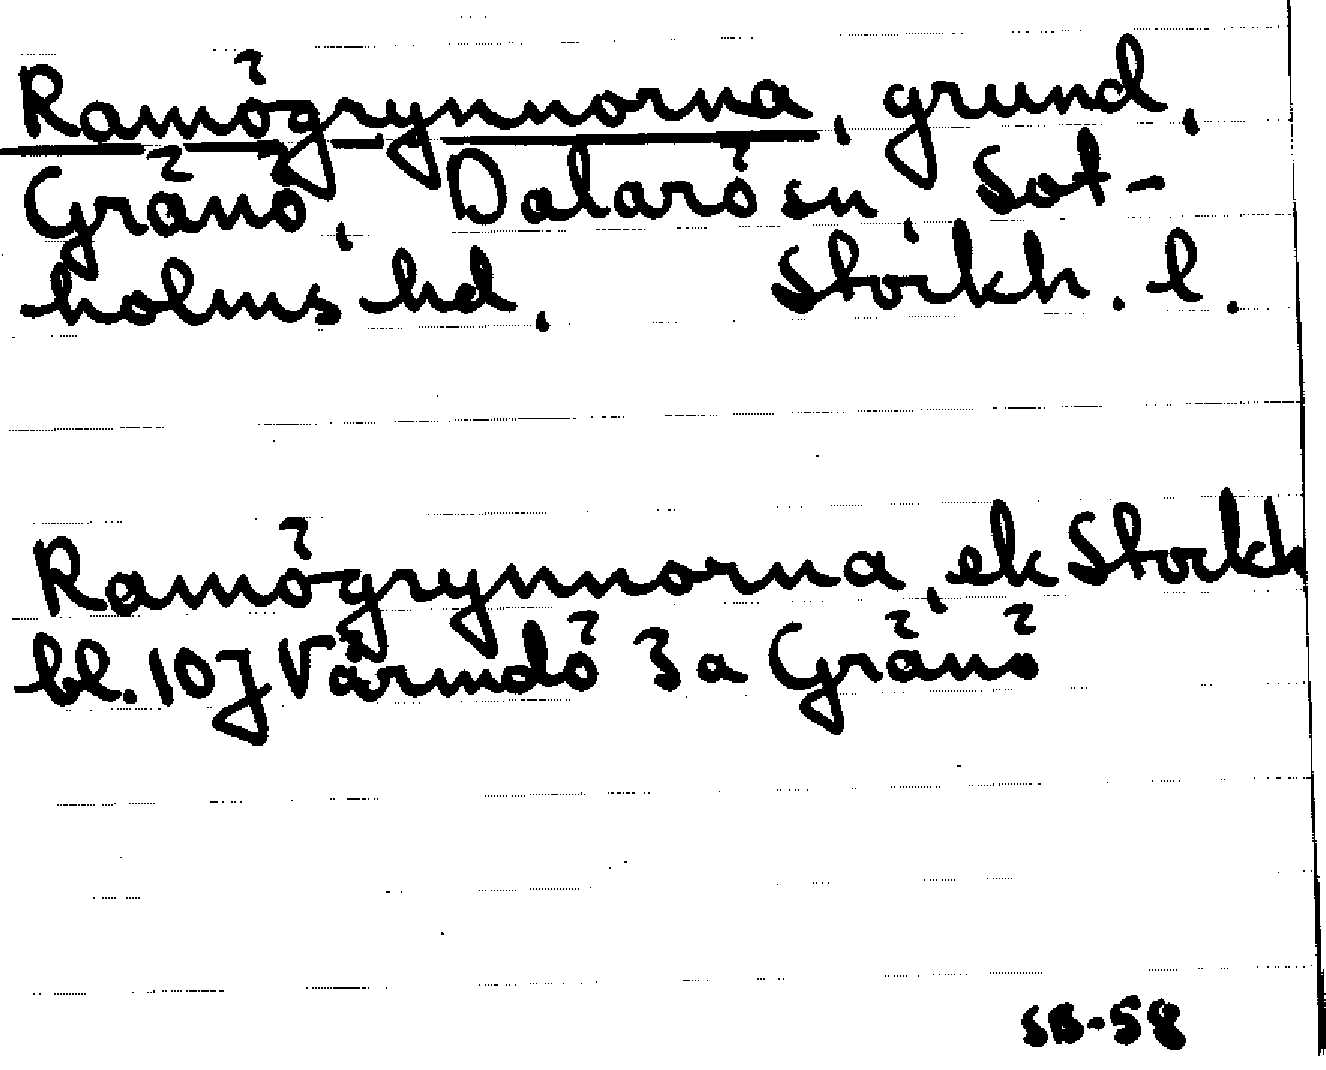 Ramögrynnorna, grund,
Gränö, Dalarö sn, Sot-
holms hd, Stockh. l.
Ramögrynnorna, ek Stockh
bl. 10J Värmdö 3a Gränö
SB-58